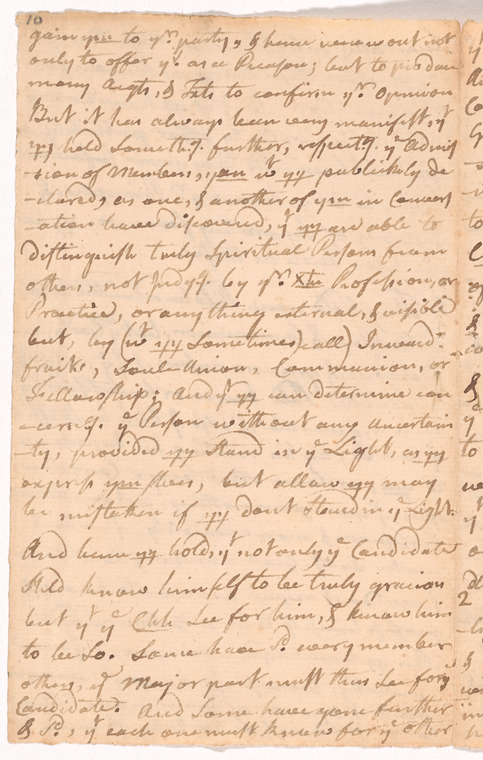 10
gain ym to yr party, & have never out not
only to offer ye as a Reason; but to produce
many Argts, & Txts to confirm yr Opinion
But it has always been very manifest, yt
yy held Someth̄g. further, respectg. ye Admis
-sion of Members, yan wt yy publickly de
-clared, as one, & another of ym in Convers
-ation have discovered, yt yy are able to
distinguish truly Spiritual Persons from
others, not Judgg. by yr. Xtn Profession, or
Practice, or anything external, & visible
but, by (wt yy Sometimes call) Inward-
fruits, Soul-Union, Communion, or
Fellowship; And yt yy can determine con
-cerng. ye Person without any uncertain
-ty, provided yy Stand in ye Light, as yy
express ymselves, but allow yy may
be mistaken if yy dont Stand in ye Light.
And hence yy hold, yt not only ye Candidate
shld know himself to be truly gracious
but yt ye Chh See for him, & know him
to be So. Some have Sd. every member
others, ye Major part must thus See for ye
Candidate. And Some have gone further
& Sd., yt each one must know for ye other